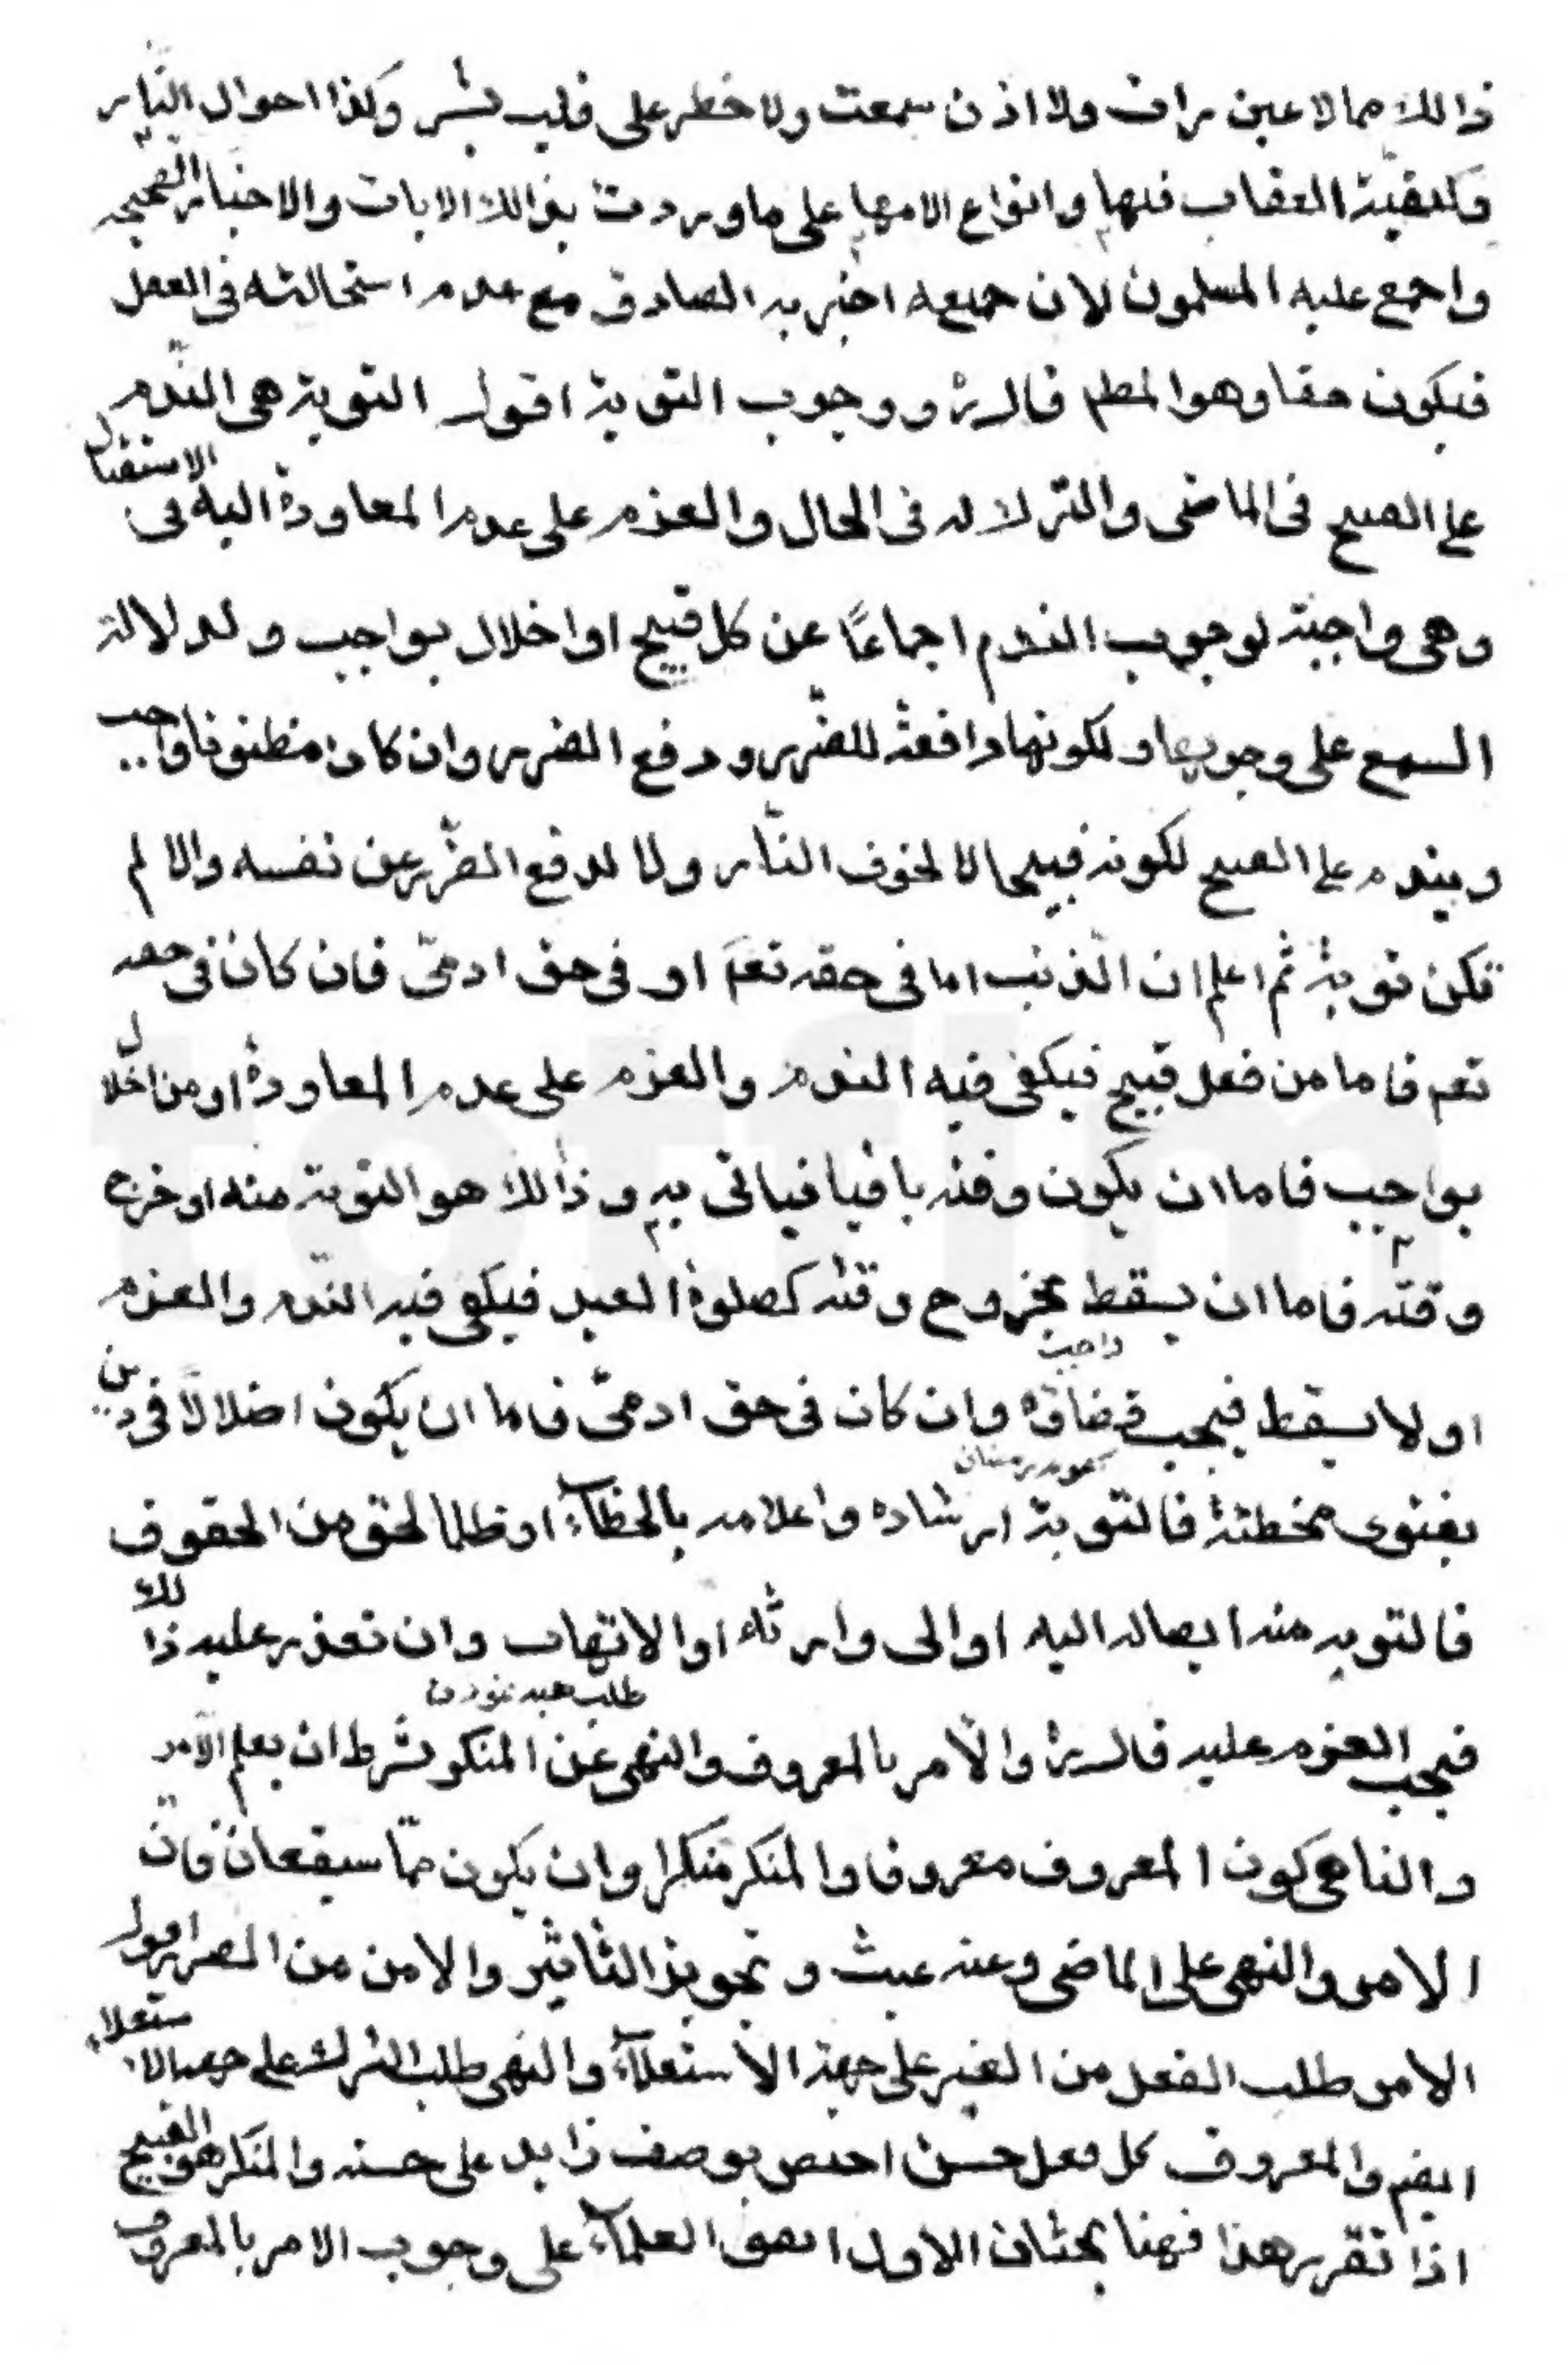 ذالك مما لا عين رات ولا اذن سمعت ولا خطر على قلب بشر وكذا احوال النار
وكيفيّة العقاب فيها وانواع الامها على ما وردت بذالك الايات والاخبار الصحيحه
واجمع عليه المسلمون لان جميعه اخبر به الصادق مع عدم استحالته فى العقل
فيكون حقا وهو المطم قال رة ووجوب التوبة اقول التوبة هى النّدم
على القبيح فى الماضى والترك له فى الحال والعزم على عدم المعاودة اليه فى الاستقبال
وهى واجبة لوجوب الندم اجماعًا عن كل قبيح او اخلال بواجب ولدلالة
السمع على وجوبها ولكونها دافعة للضّرر ودفع الضرر وان كان مظنونا واجب
ويندم على القبيح لكونه قبيحا لا لخوف النّار ولا لدفع الضّرر عن نفسه والا لم
تكن توبة ثم اعلم ان الذّنب اما فى حقه تعم او فى حق ادمىّ فان كان فى حقه
تعم فاما من فعل قبيح فيكفى فيه الندم والعزم على عدم المعاودة او من اخلال
بواجب فاما ان يكون وقته باقيا فياتى به وذالك هو التوبة منه او خرج
وقته فاما ان يسقط بخروج وقته كصلوة العيد فيكفى فيه النّدم والعزم
او لا يسقط فيجب قضاؤه وان كان فى حق ادمىّ فاما ان يكون اضلالًا فى دين
واجبت
بفتوى مخطئة فالتوبة ارشاده واعلامه بالخطآء او ظلما لحق من الحقوق
فالتوبه منه ايصاله اليه او الى وارثه او الاتهاب وان تعذر عليه ذالك
طلب هبه نمودن
فيجب العزم عليه قال رة والأمر بالمعروف والنهى عن المنكر بشرط ان يعلم الآمر
والناهى كون المعروف معروفا والمنكر منكرا وان يكون ممّا سيقعان فانّ
الامر والنهى على الماضى وعنه عبث وتجويز التاثير والامن من الضرر اقول
الامر طلب الفعل من الغير على جهة الأستعلآء والنهى طلب الترك على جهه الاستعلاء
ايضم والمعروف كل فعل حسن اختص بوصف زايد على حسنه والمنكر هو القبيح
اذا تقرر هذا فهنا بحثان الاول اتفق العلمآء على وجوب الامر بالمعروف